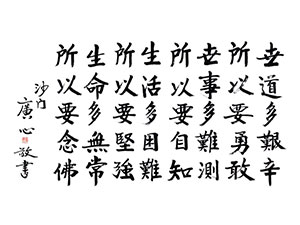 世道多艱辛
所以要勇敢
世事多難測
所以要自知
生活多困難
所以要堅強
生命多無常
所以要念佛
沙門
廣心敬書